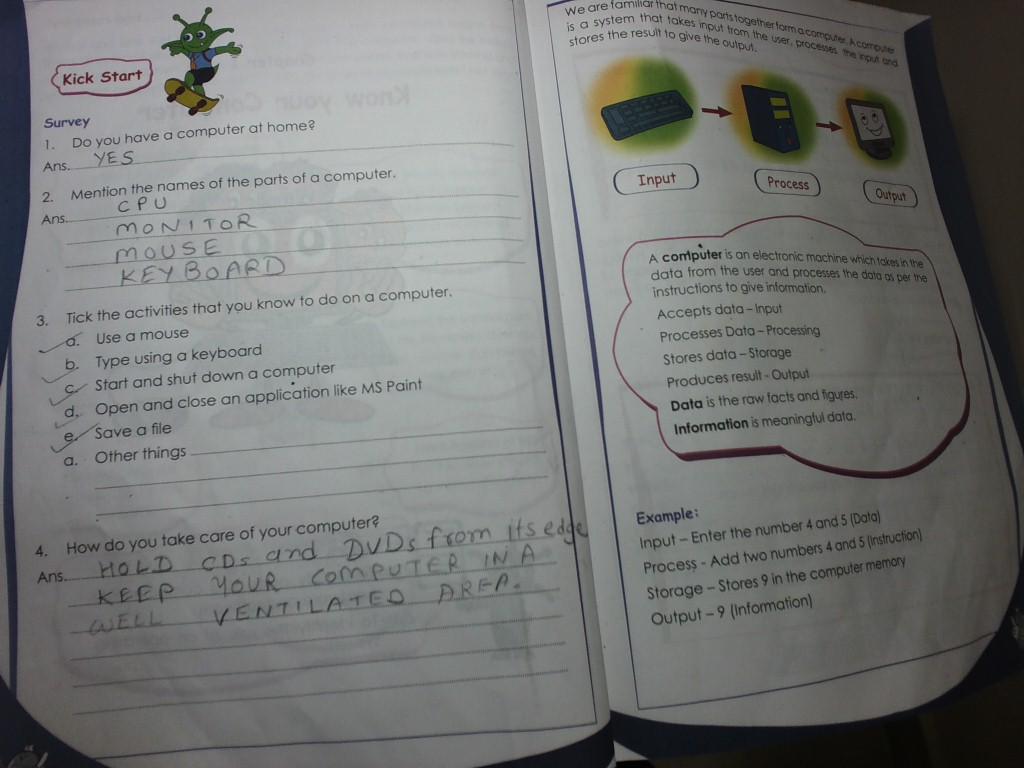 Kick Start
Survey
1. Do you have a computer at home?
Ans. YES
2. Mention the names of the parts of a computer.
Ans. CPU
MONITOR
MOUSE
KEYBOARD
3. Tick the activities that you know to do on a computer.
a. Use a mouse
b. Type using a keyboard
c. Start and shut down a computer
d. Open and close an application like MS Paint
e. Save a file
a. Other things
4. How do you take care of your computer?
Ans. HOLD CDs and DVDs from its edge
KEEP YOUR COMPUTER IN A
WELL VENTILATED AREA.
We are familiar that many parts together form a computer. A computer
is a system that takes input from the user, processes the input and
stores the result to give the output.
Input
Process
Output
A computer is an electronic machine which takes in the
data from the user and processes the data as per the
instructions to give information.
Accepts data – Input
Processes Data – Processing
Stores data – Storage
Produces result - Output
Data is the raw facts and figures.
Information is meaningful data.
Example:
Input – Enter the number 4 and 5 (Data)
Process - Add two numbers 4 and 5 (Instruction)
Storage – Stores 9 in the computer memory
Output – 9 (Information)